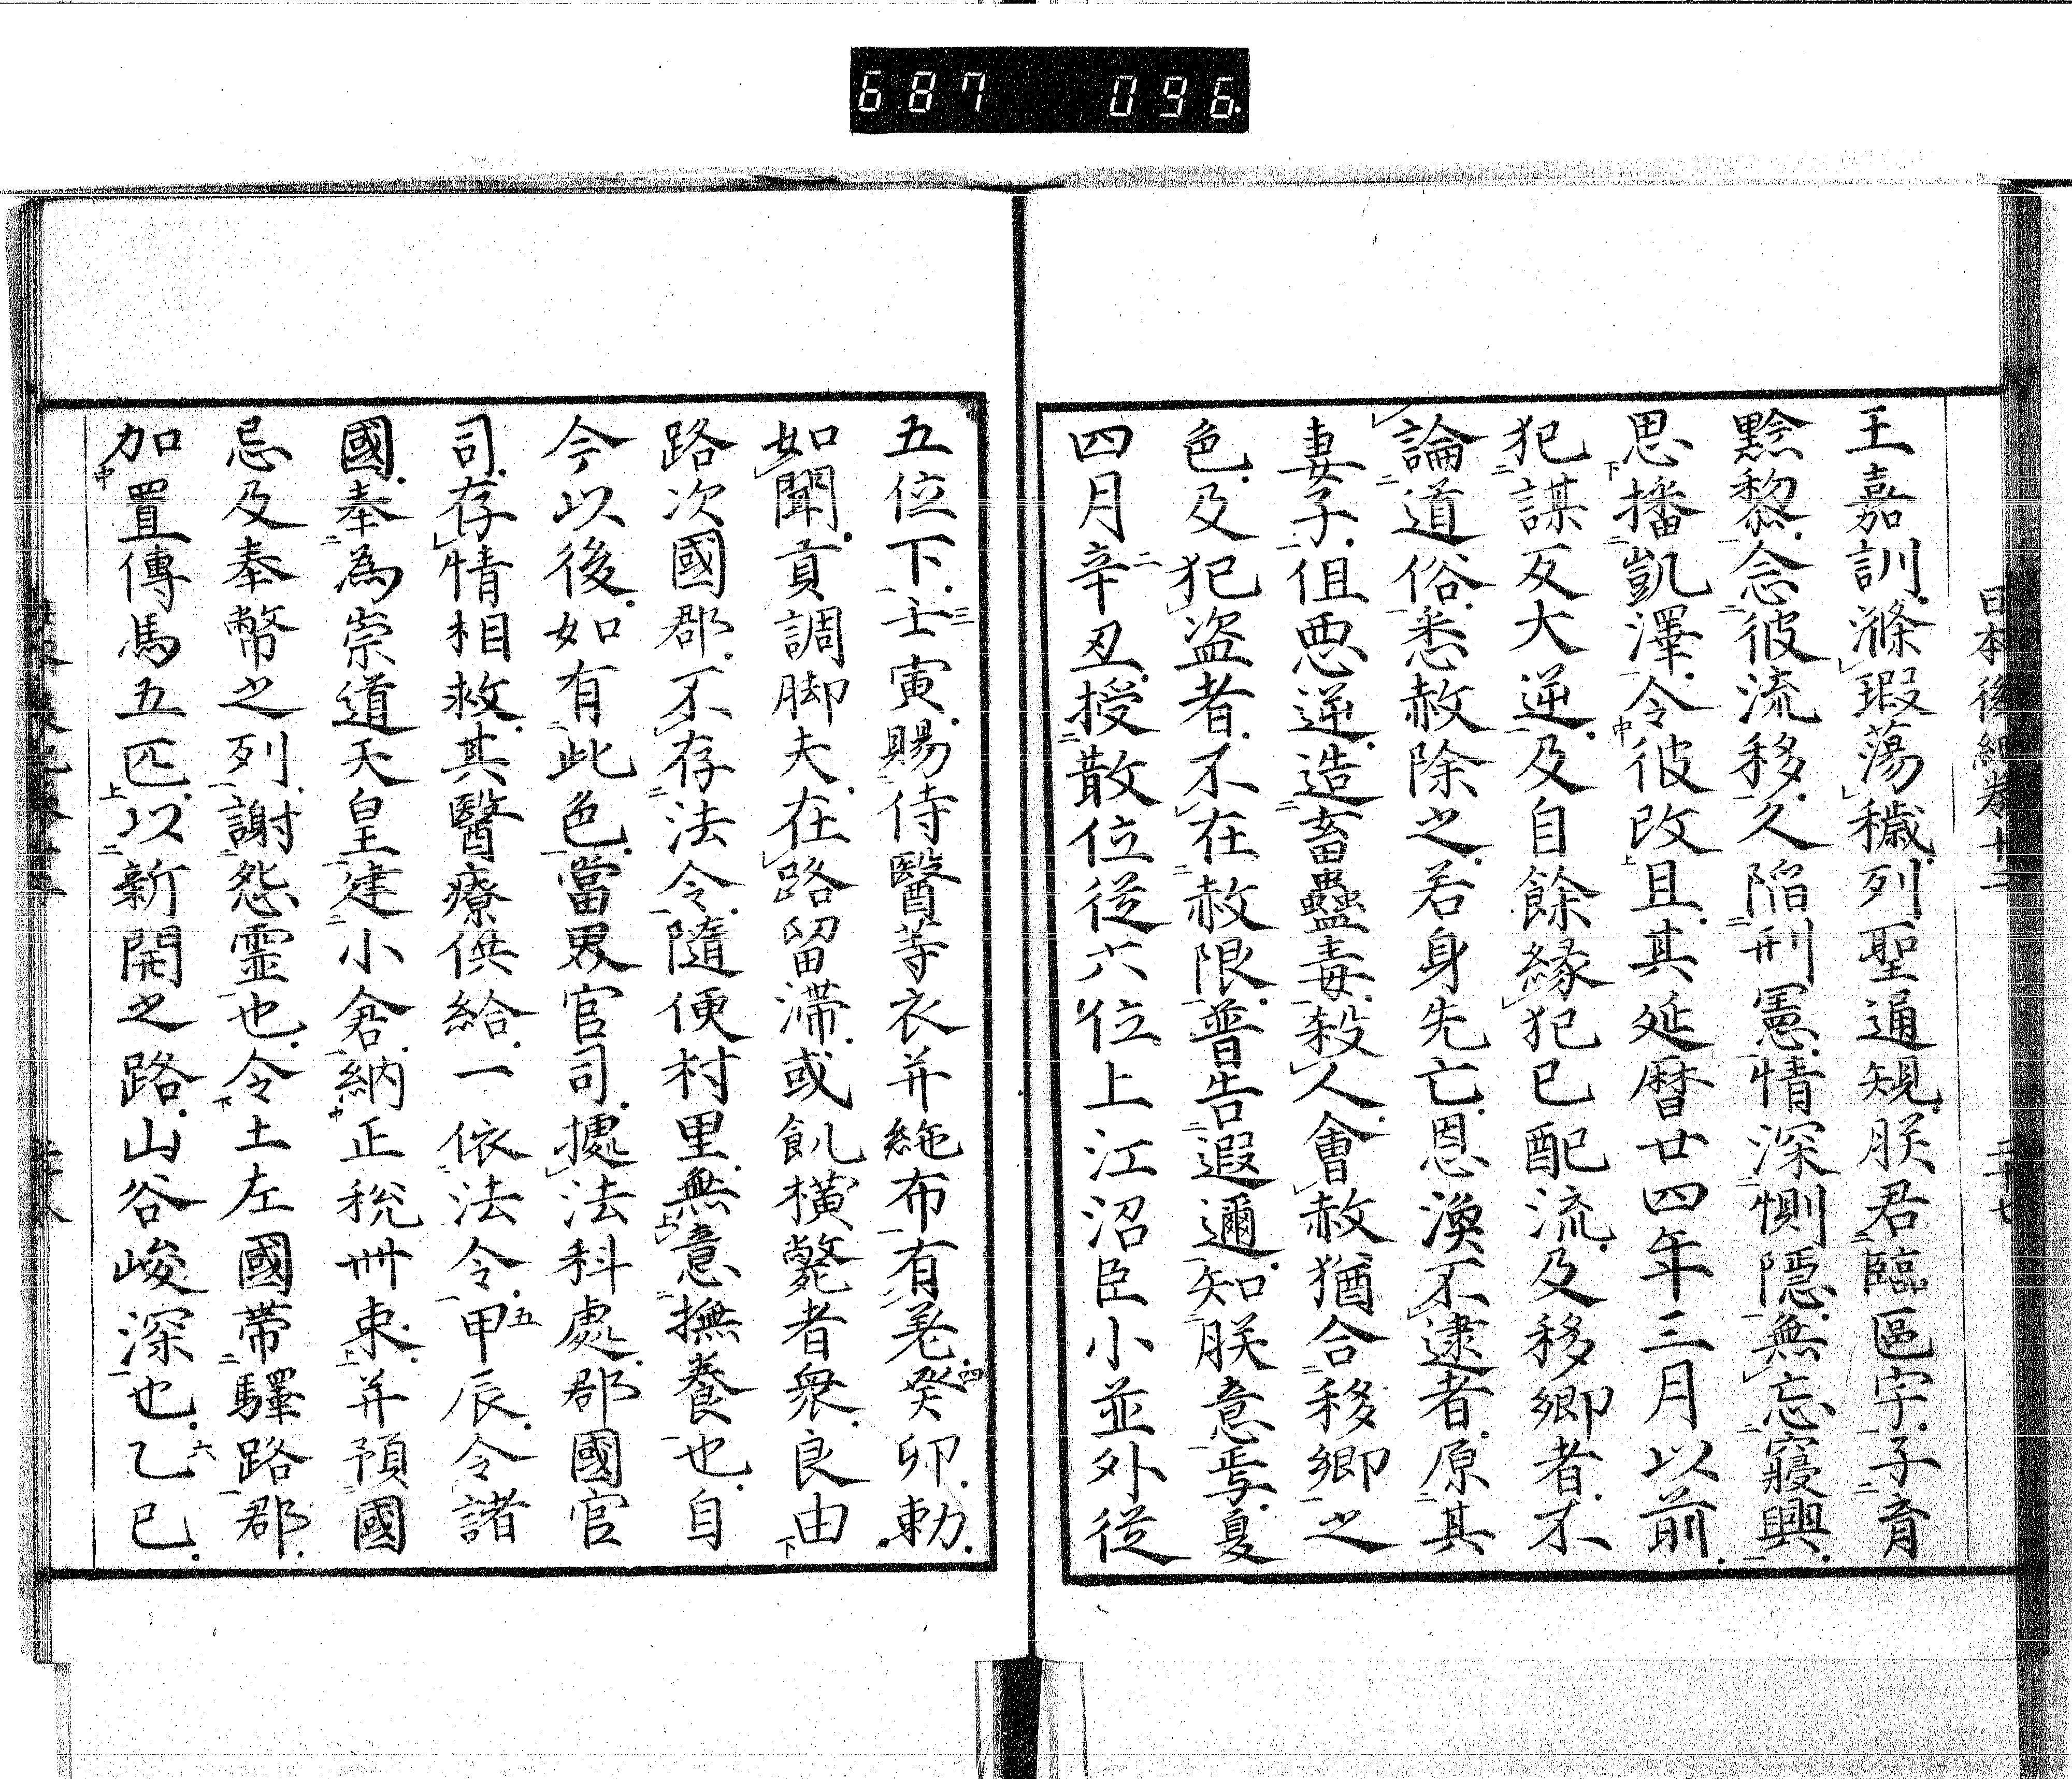 687 096
日本後紀卷十二 二十七
王嘉訓滌瑕蕩穢列聖通規朕君臨區宇子育
黔黎念彼流移久陷刑憲情深惻隱無忘寢興
思播凱澤令彼改且其延曆廿四年三月以前
犯謀反大逆及自餘緣犯已配流及移鄉者不
論道俗悉赦除之若身先亡恩渙不逮者原其
妻子但惡逆造畜蠱毒殺人會赦猶合移鄉之
色及犯盜者不在赦限普告遐邇知朕意焉夏
四月辛丑授散位從六位上江沼臣小並外從
五位下壬寅賜侍醫等衣并絁布有差癸卯勅
如聞貢調脚夫在路留滯或飢橫斃者衆良由
路次國郡不存法令隨便村里無意撫養也自
今以後如有此色當界官司據法科處郡國官
司存情相救其醫療供給一依法令甲辰令諸
國奉為崇道天皇建小倉納正稅卌束并預國
忌及奉幣之列謝怨靈也令土左國帶驛路郡
加置傳馬五匹以新開之路山谷峻深也乙巳